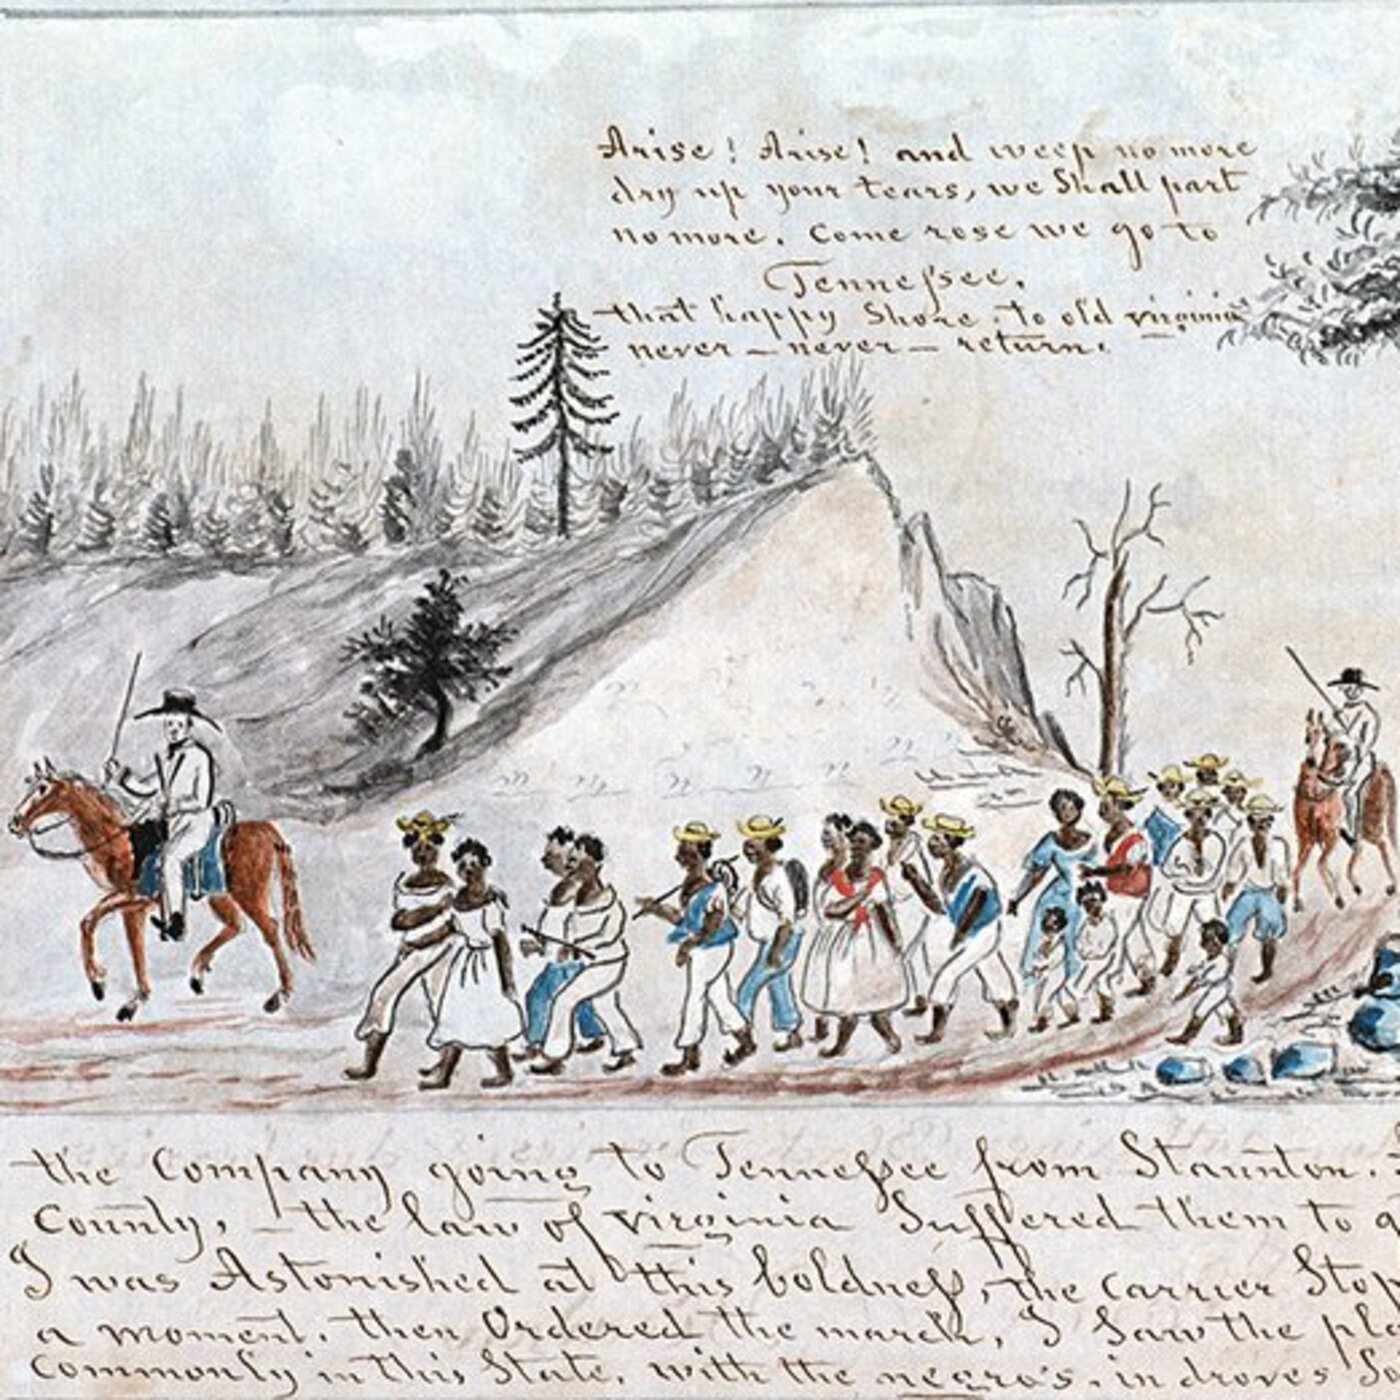 Arise! Arise! and weep no more
dry up your tears, we Shall part
no more. Come rose we go to
Tenneſsee,
that happy Shore. to old virginia
never – never – return.
the Company going to Tenneſsee from Staunton.
County, – the law of virginia Suffered them to g
I was Astonished at this boldneſs, the carrier Stop
a moment. then Ordered the march, I Saw the pla
Commonly in this State, with the negro's in droves So